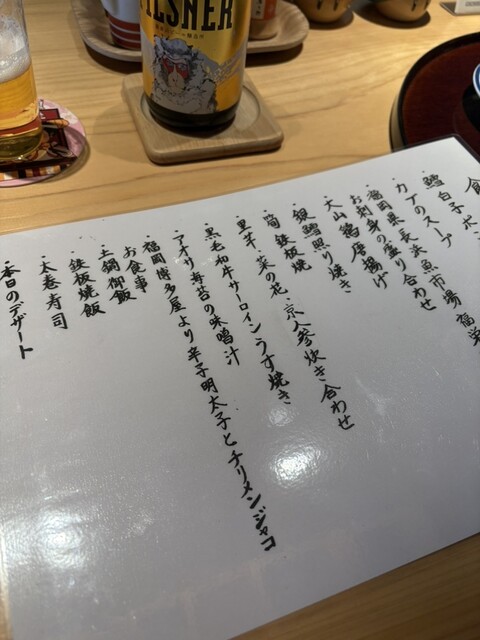 PILSNER
・鱈白子ポン
・カブのスープ
・福岡県長浜魚市場 福栄
お刺身の盛り合わせ
・大山鶏唐揚げ
・銀鱈照り焼き
・筍 鉄板焼
・里芋・菜の花・京人参炊き合わせ
・黒毛和牛サーロインうす焼き
・アオサ海苔の味噌汁
・福岡博多屋より辛子明太子とチリメンジャコ
お食事
・土鍋御飯
・鉄板焼飯
・太巻寿司
・本日のデザート